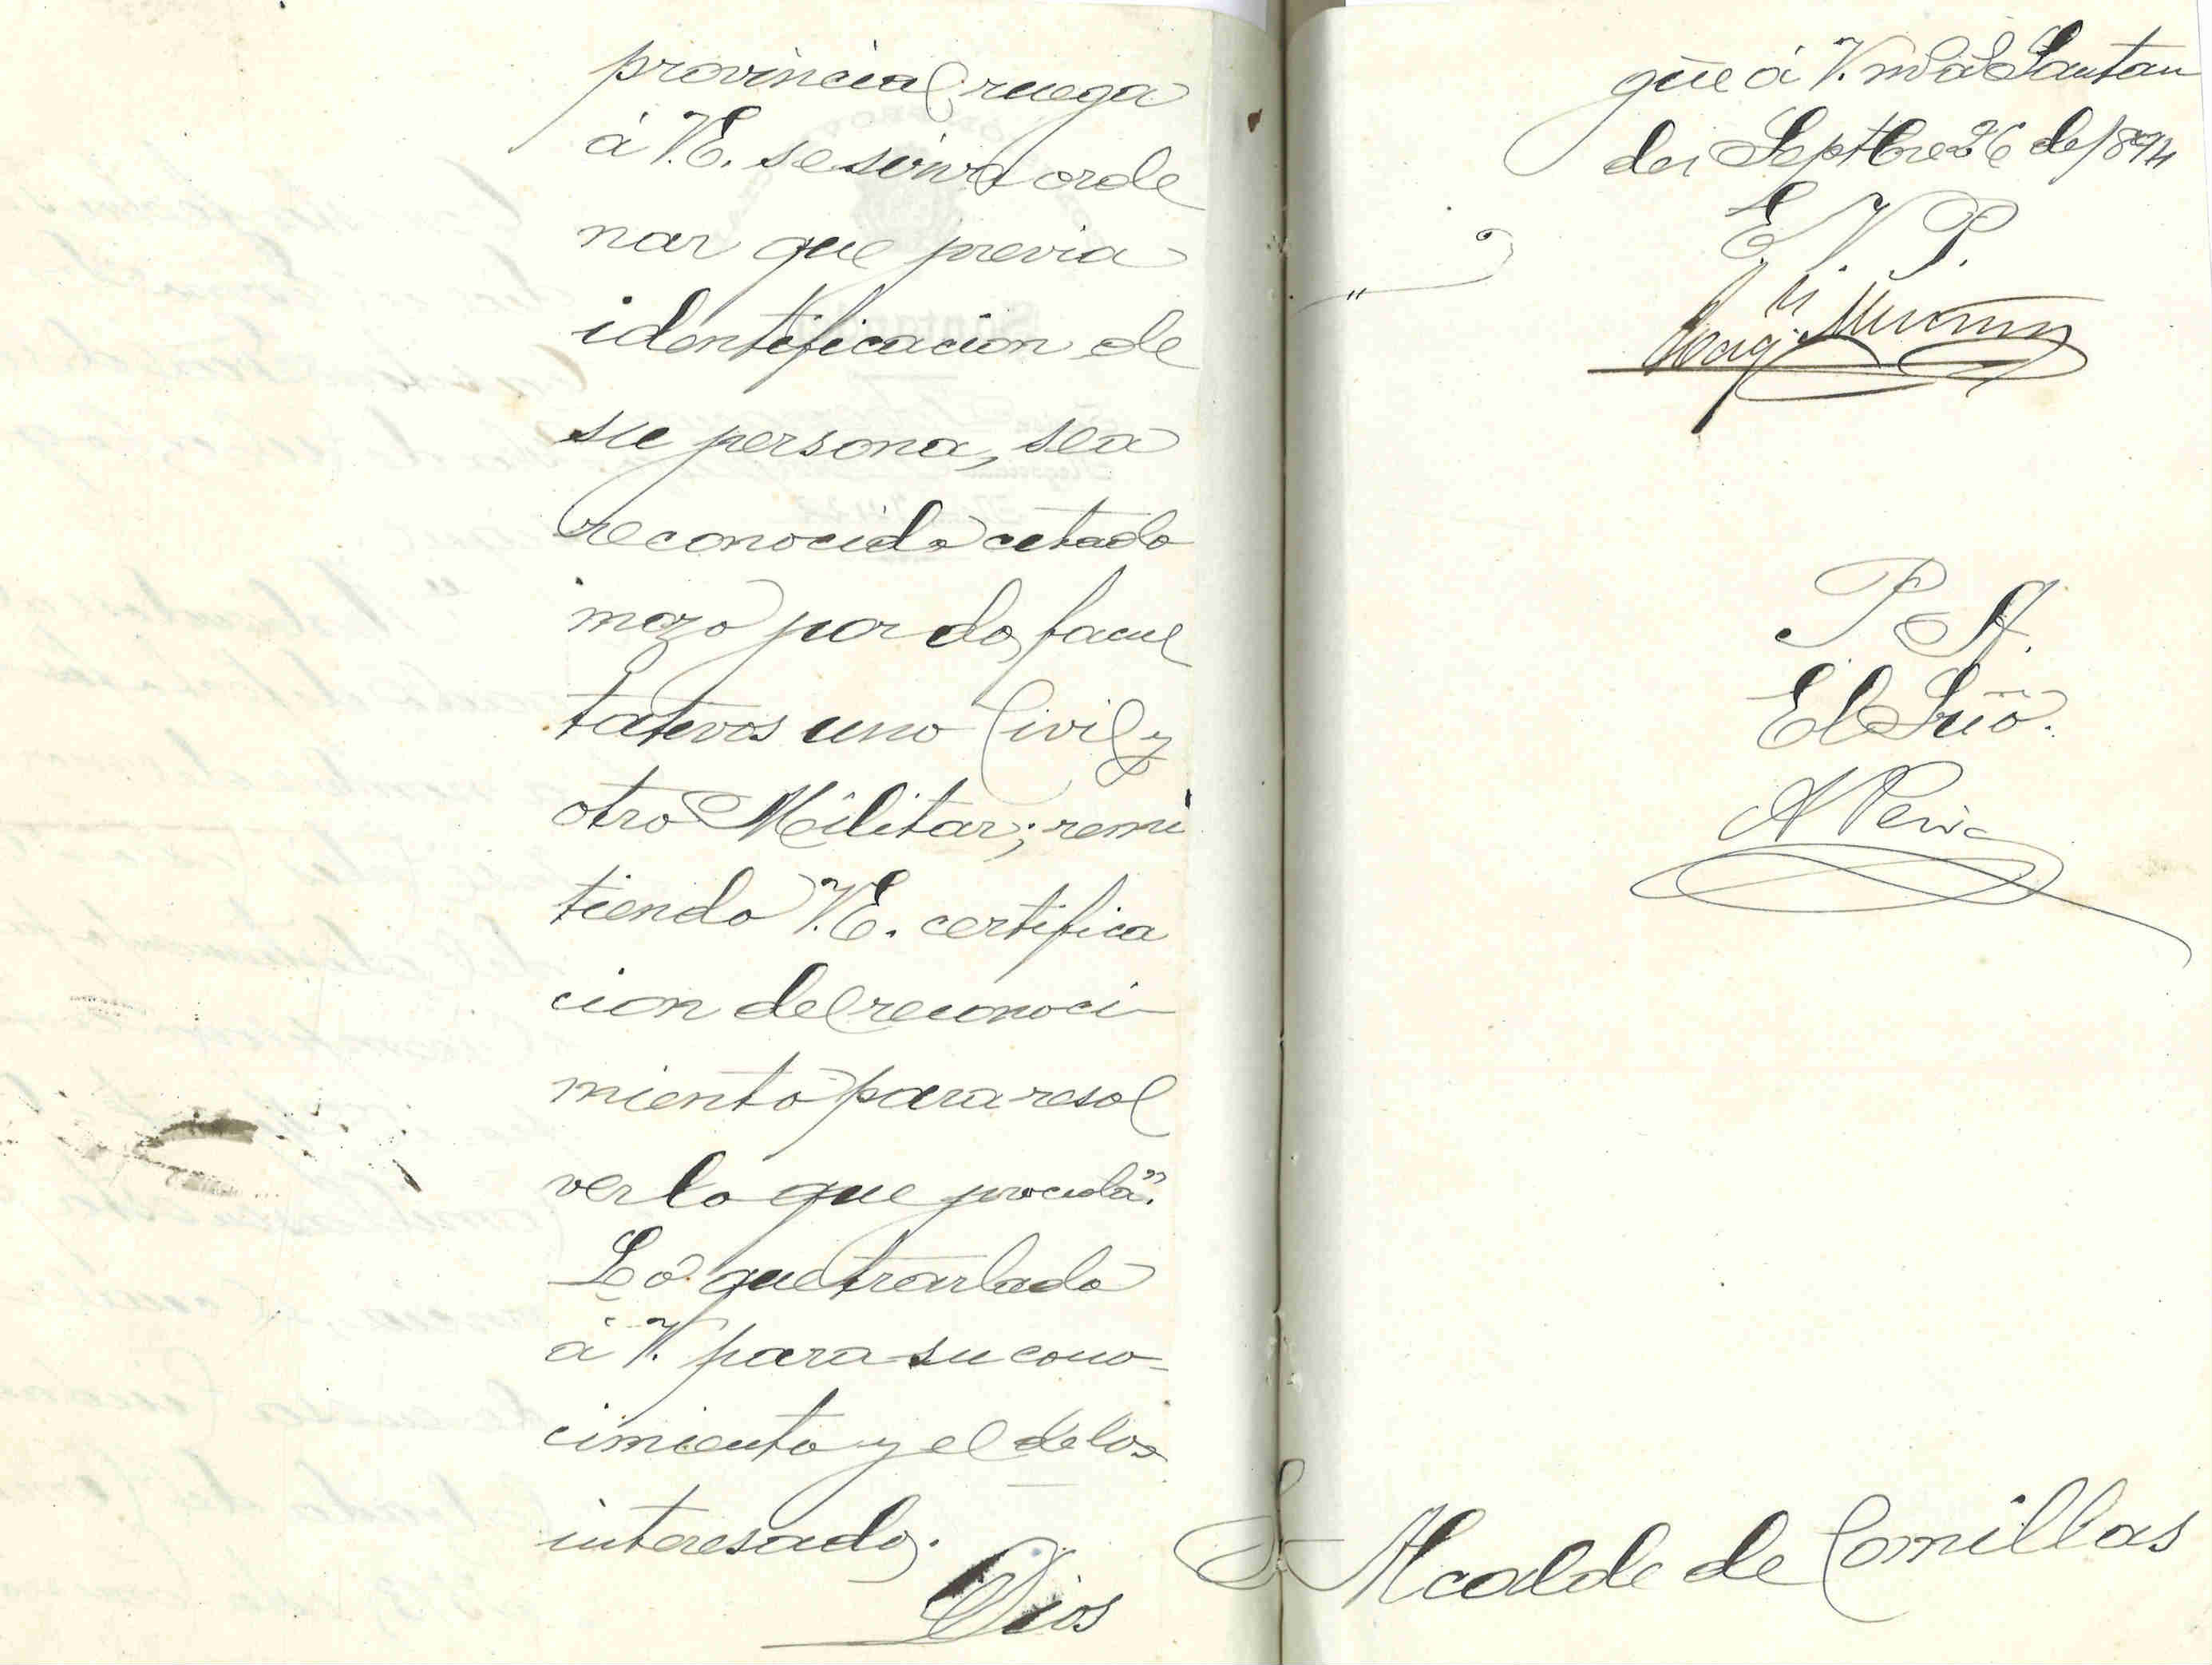 provincial, ruega
á V.E. se sirva orde
nar que previa
identificacion de
su persona, sea
reconocido citado
mozo por dos facul
tativos uno Civil y
otro Militar; remi
tiendo V.E. certifica
cion del reconoci-
miento para resol
ver lo que proceda".
Lo que traslado
á V. para su cono-
cimiento y el de los
interesados.
Dios
gūe á V. m.s a.s Santan
der Septbre 26 de 1894
E. V. P.
P. A.
El Srio.
S.r Alcalde de Comillas